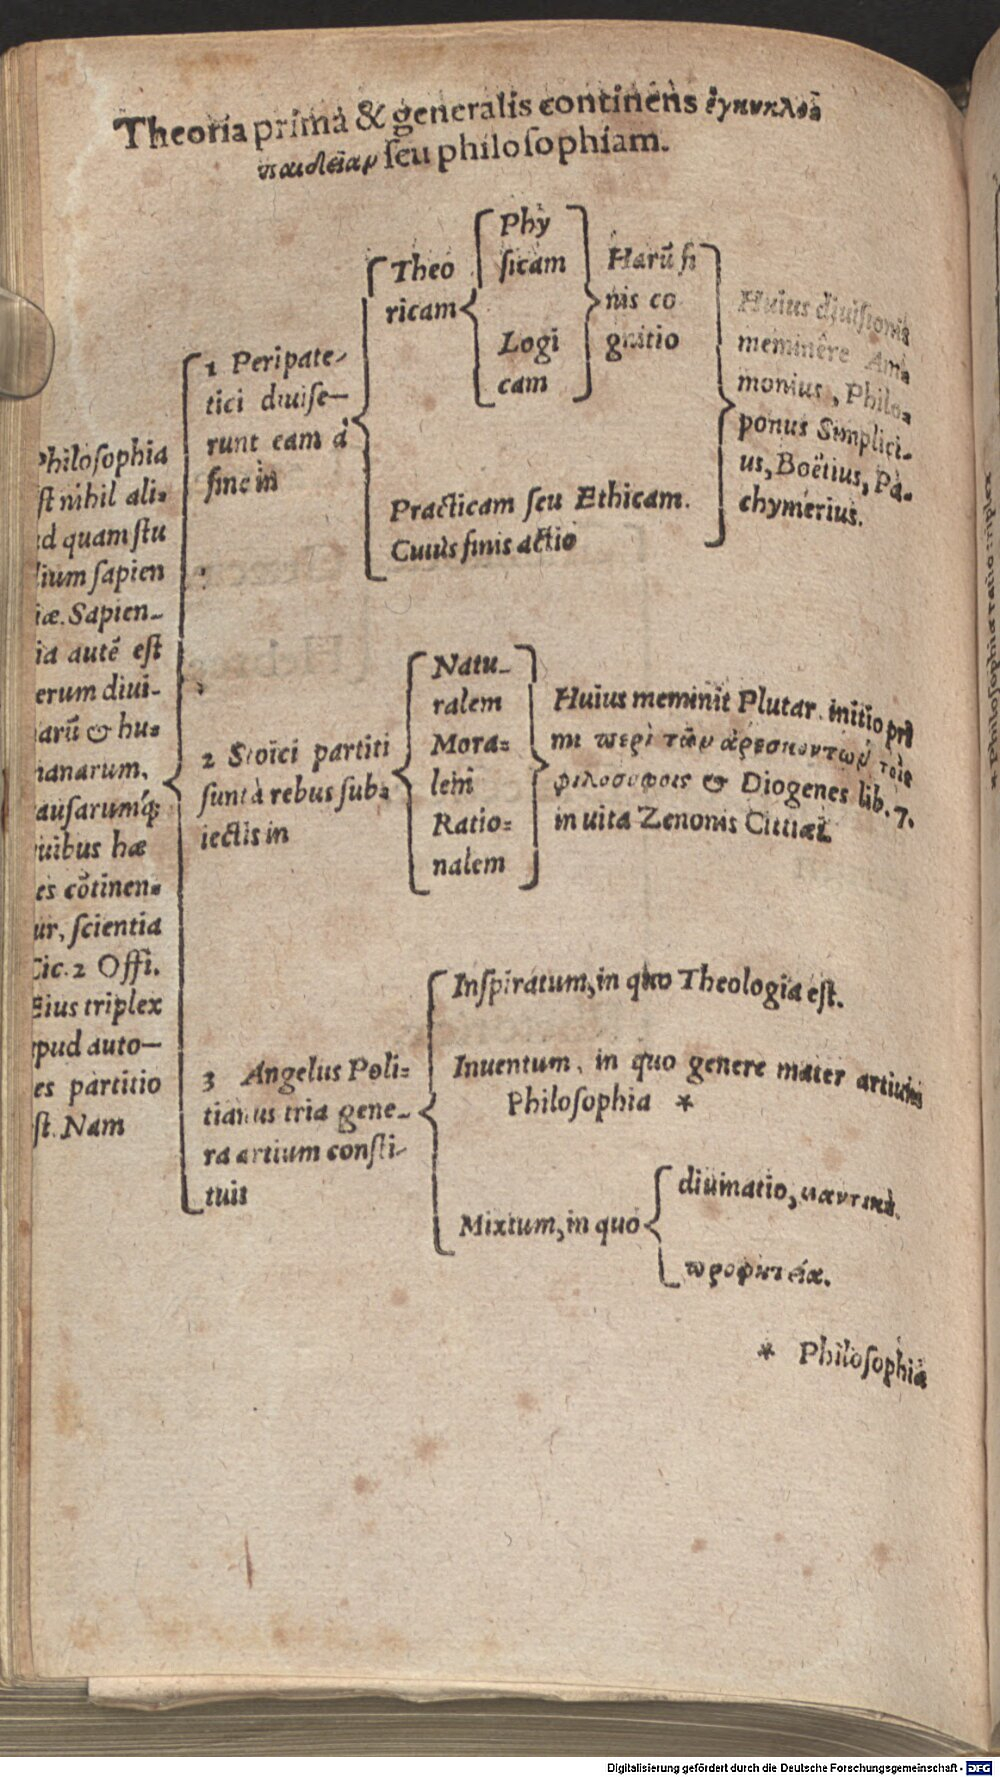 Theoria prima & generalis continens ἐγκυκλοα
παιδείαν seu philosophiam.
Philosophia
st nihil ali=
d quam stu
dium sapien
iæ. Sapien-
ia autē est
erum diui-
arū & hu=
nanarum,
ausarumq́;
uibus hæ
es cōtinen=
ur, scientia
Cic. 2 Offi.
Eius triplex
apud auto-
es partitio
st. Nam
1 Peripate-
tici diuise-
runt eam à
fine in
Theo
ricam
Phy
sicam
Logi
cam
Harū fi
nis co
gnitio
Practicam seu Ethicam.
Cuius finis actio
Huius diuisionis
meminêre Am=
monius, Philo=
ponus Simplici-
us, Boëtius, Pa-
chymerius.
2 Stoici partiti
sunt à rebus sub=
iectis in
Natu-
ralem
Mora=
lem
Ratio=
nalem
Huius meminit Plutar. initio pri
mi περὶ τῶν ἀρεσκοντων τοῖς
φιλοσοφοις & Diogenes lib. 7.
in uita Zenonis Cittiæi.
3 Angelus Poli=
tianus tria gene-
ra artium consti-
tuit
Inspiratum, in quo Theologia est.
Inuentum, in quo genere mater artium
Philosophia *
Mixtum, in quo
diuinatio, μαντικὴ.
προφητεία.
* Philosophia
* Philosophiæ ratio triplex
Digitalisierung gefördert durch die Deutsche Forschungsgemeinschaft - DFG